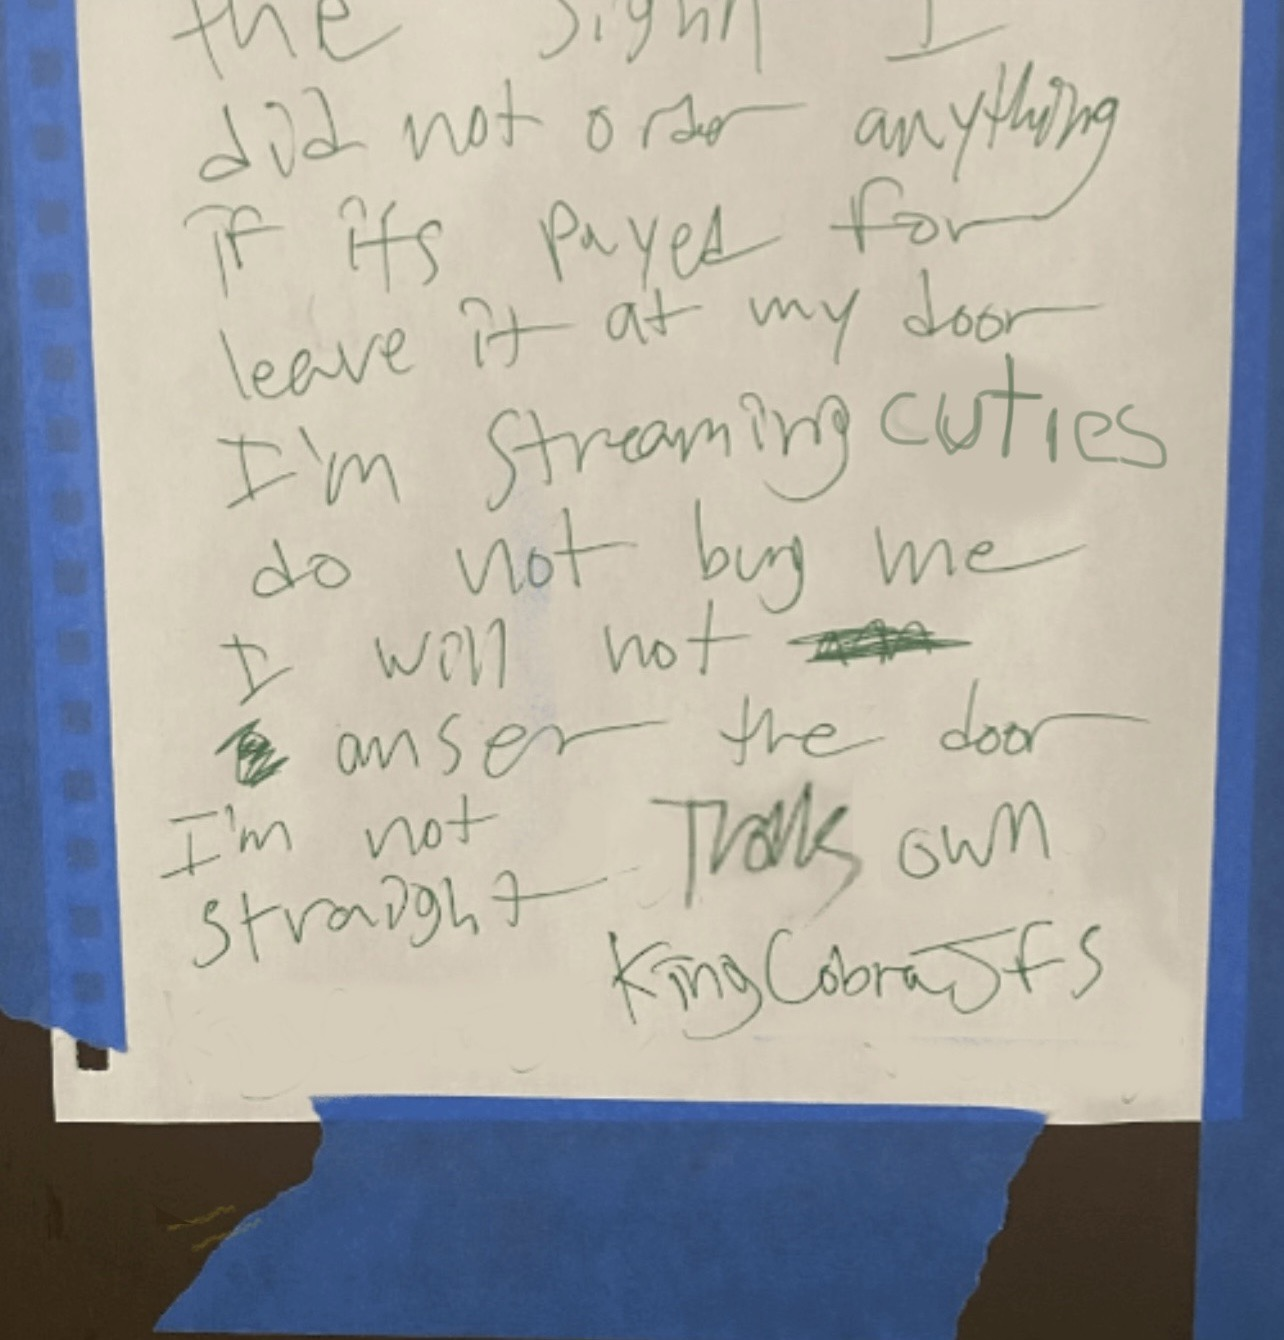 the sign I
did not order anything
if its payed for
leave it at my door
I'm streaming cuties
do not bug me
I will not
anser the door
I'm not Trolls own
straight
KingCobraJFS